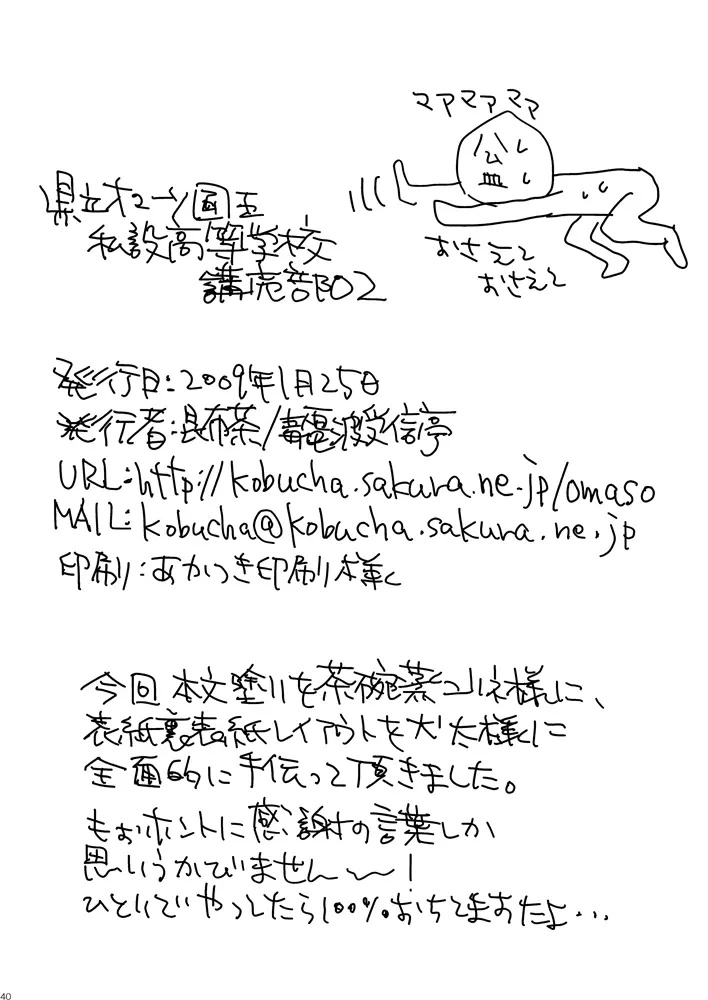 マアマアママ
公
皿
県立オマーン国王
私設高等学校
購売部02
おさえて
おさえて
発行日:2009年1月25日
発行者:昆布茶/毒電波受信亭
URL:http://kobucha.sakura.ne.jp/omaso
MAIL:kobucha@kobucha.sakura.ne.jp
印刷:あかつき印刷様
今回本文塗りを茶碗蒸コリネ様に、
表紙裏表紙レイアウトを犬太様に
全面的に手伝って頂きました。
もぉホントに感謝の言葉しか
思いうかびません〜!
ひとりでやってたら100%おちてますたよ…
40